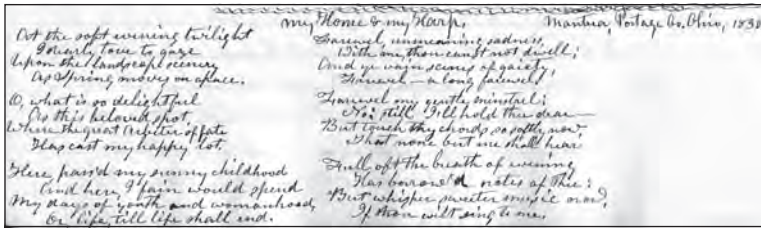 My Home & my Harp. Mantua, Portage Co. Ohio, 1830
At the soft evening twilight
I dearly love to gaze
Upon the landscape scenery
As Spring moves on apace.
O, what is so delightful
As this beloved spot,
Where the great Arbiter of fate
Has cast my happy lot.
Here pass'd my sunny childhood
And here, I fain would spend
My days of youth and womanhood,
Or life, till life shall end.
Farewel unmeaning sadness,
With me, thou canst not dwell;
And ye vain scenes of gaiety,
Farewel — a long farewel!
Farewel my gentle minstrel;
No: still I'll hold thee dear—
But touch thy chords so softly now,
That none but me shall hear
Full oft the breath of evening
Has borrow'd notes of thee:
But whisper sweeter music now,
If thou wilt sing to me,